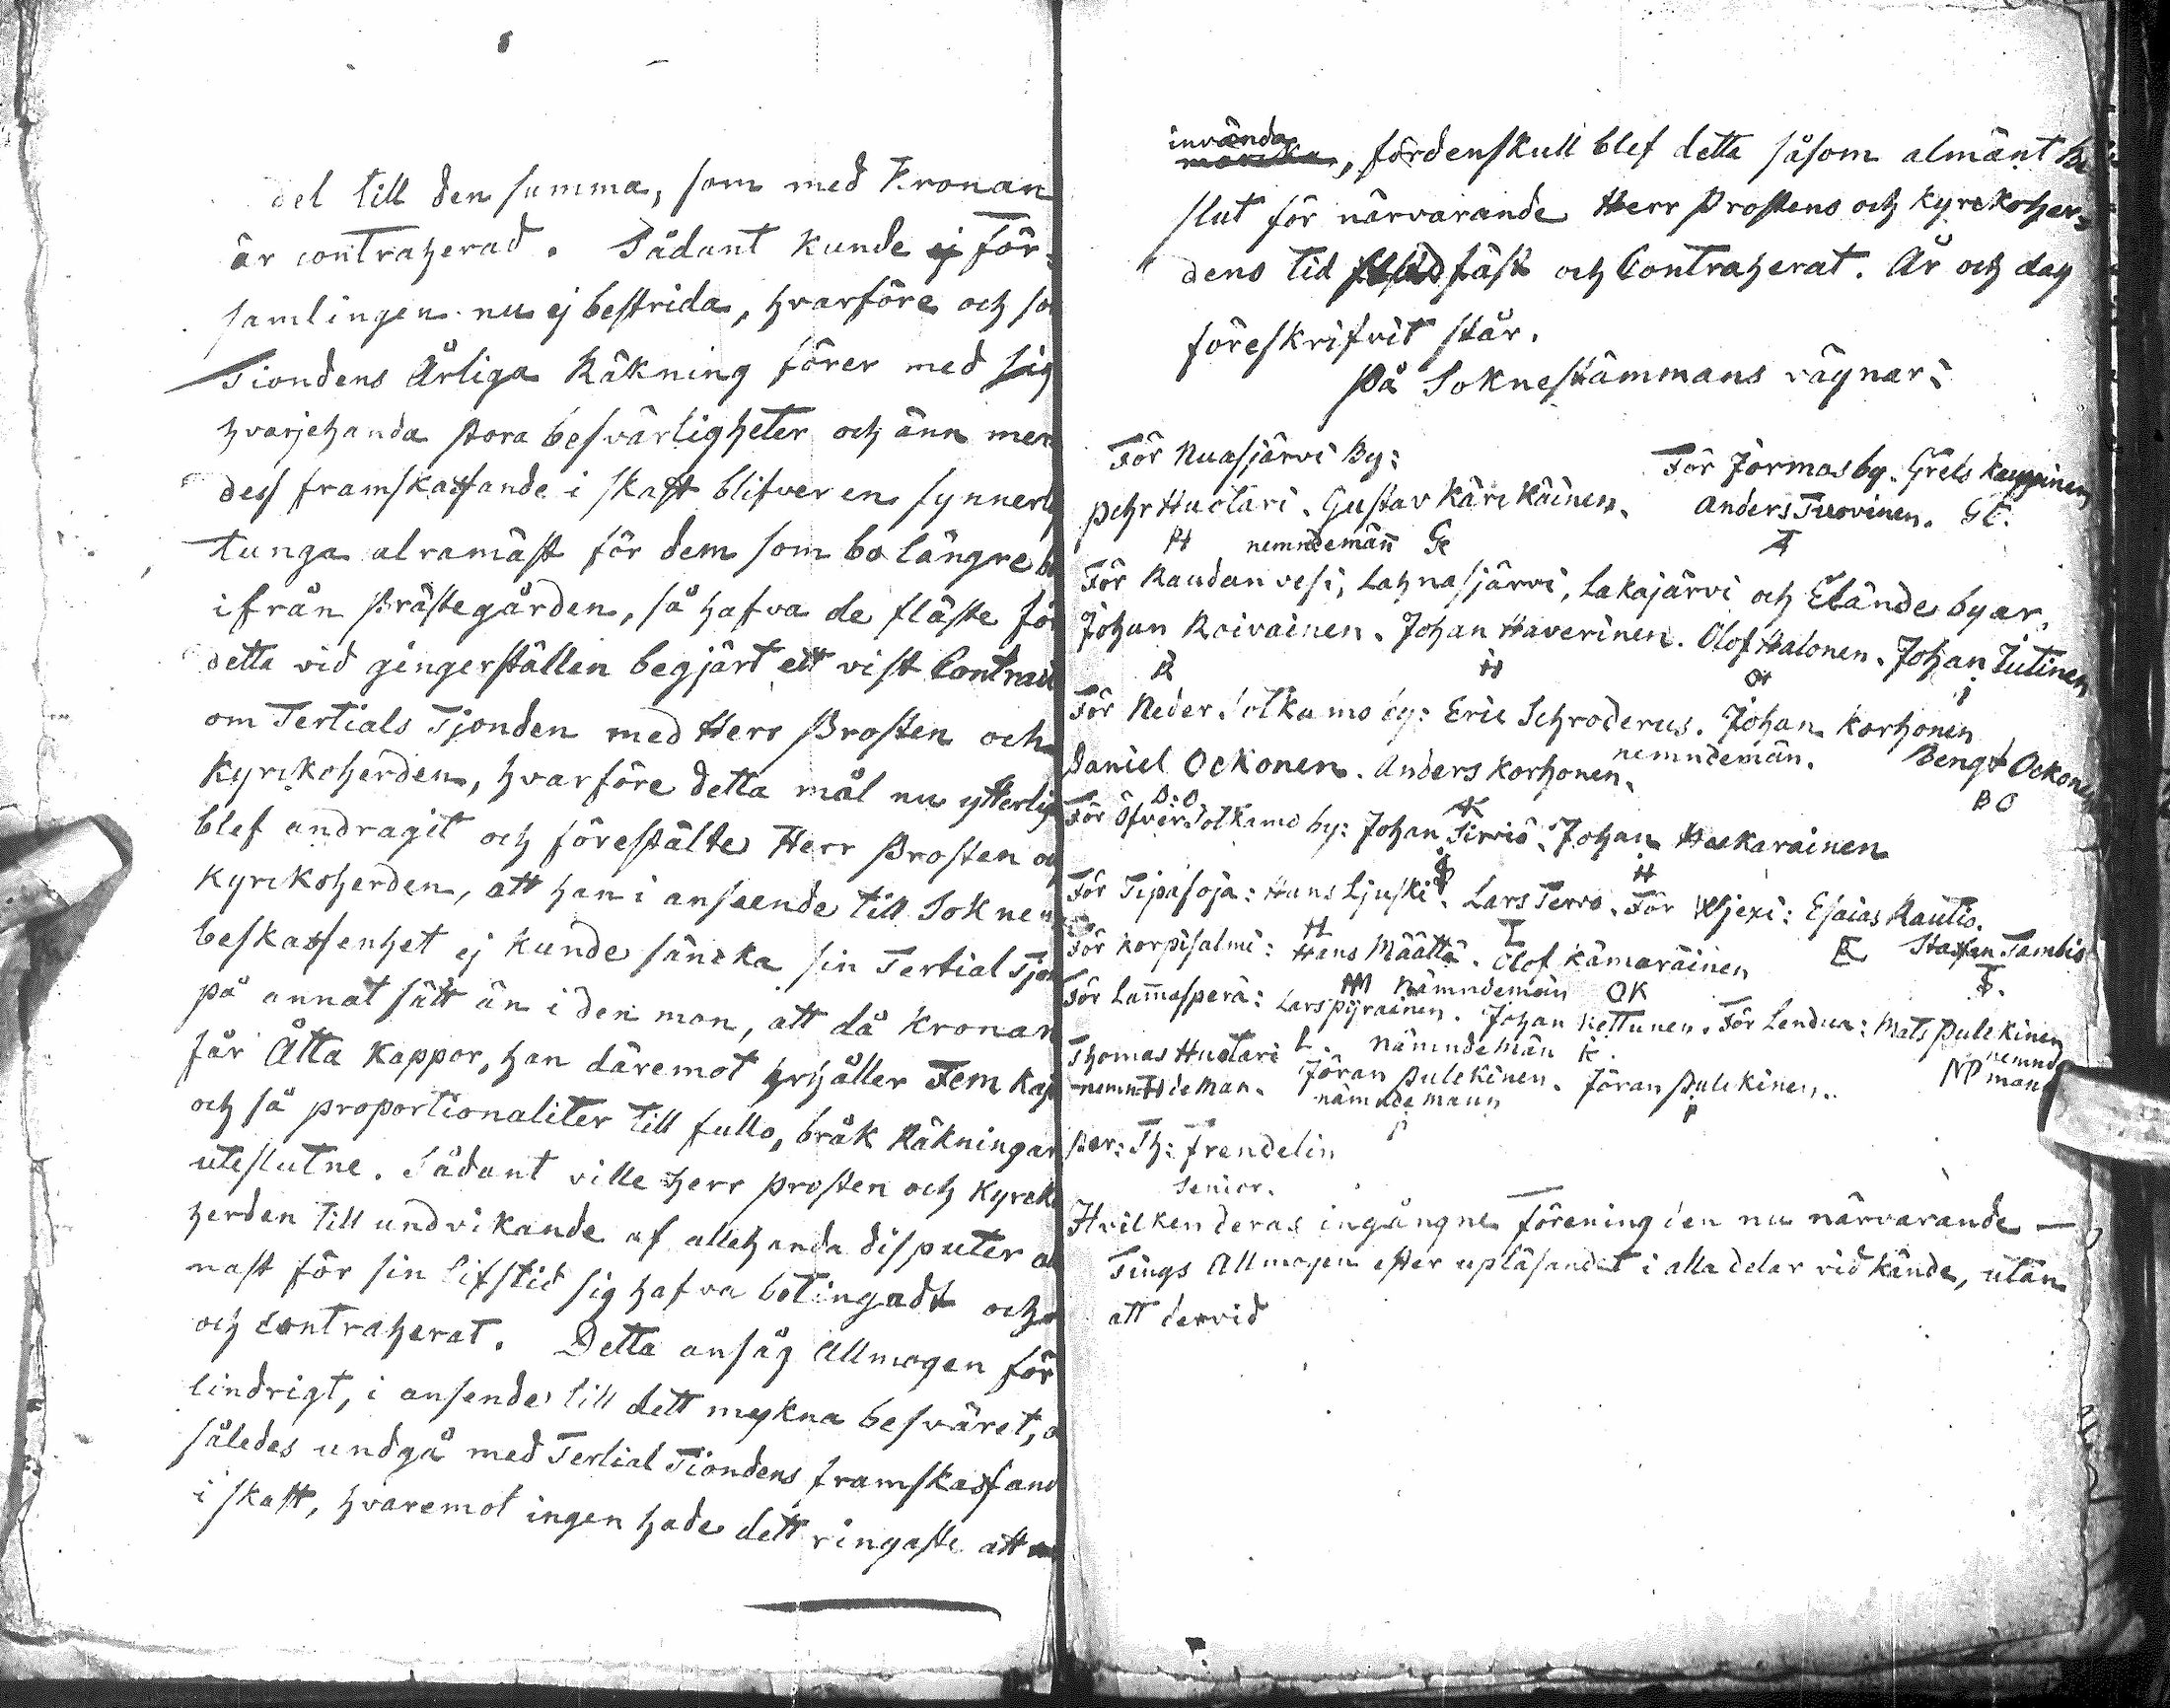 del till den summa, som med Kronan
är contraherad. Sådant kunde ej För-
samlingen nu ej bestrida, hvarföre och
Tiondens Årliga Räkning förer med sig
hvarjehanda stora besvärligheter och änn mer
dess framskaffande i skaft blifver en synnerl
tunga alramäst för dem som bo längre
ifrån Prästegården, så hafva de fläste för
detta vid gingerställen begjärt ett vist Contract
om Tertials Tjonden med Herr Prosten och
Kyrckoherden, hvarföre detta mål nu ytterlig
blef andragit och förestälte Herr Prosten och
Kyrckoherden, att han i anseende till Soknens
beskaffenhet ej kunde säncka sin Tertial Tjon
på annat sätt än i den mon, att då Kronan
får Åtta Kappor, han däremot erhåller Fem Kap
och så proportionaliter till fullo, bråk Räkningar
uteslutne. Sådant ville herr prosten och Kyrcko
herden till undvikande af allehanda disputer al
nast för sin lifstid sig hafva betingadt och
och contraherat. Detta ansåg Allmogen för
lindrigt, i ansende till dett myckna besväret,
således undgå med Tertial Tiondens framskaffand
i skatt, hvaremot ingen hade dett ringaste att
invända
, fördenskull blef detta såsom almänt Be
slut för närvarande Herr Prostens och Kyrckoher-
dens tid fäst och Contraherat. År och dag
föreskrifvit står.
På Soknestämmans vägnar:
För Nuasjärvi By: För Jormas by. Grels Kauppinen
Pehr Huotari. Gustav Kärckäinen. Anders Tuovinen. GC.
PH nemndemän GK AT
För Naudanvesi, Lahnasjärvi, Lakajärvi och Eländes byar,
Johan Roivainen. Johan Haverinen. Olof Halonen. Johan Jutinen
R H OH J
För Neder Sotkamo by: Eric Schroderus. Johan Korhonen
nemndemän.
Daniel Ockonen. Anders Korhonen. Bengt Ockonen
D:O AK BO
För Öfver Sotkamo by: Johan Sirviö. Johan Hackarainen
S H
För Tipasoja: Hans Ljuski. Lars Tervo. För Wjexi: Esaias Rautio.
H T ER Staffan Tambio
För Korpisalmi: Hans Määttä. Olof Kämäräinen T.
HM Nämndemän OK
För Lammasperä: Lars Pyräinen. Johan Kettunen. För Lendua: Mats Pulckinen
L. nämndemän K. nemnde
Thomas Huotari Jöran Pulckinen. Jöran Pulckinen. MP man
nemndeman. nämndemann P
P
Per: Th: Frendelin
Senior.
Hvilken deras ingångne förening den nu närvarande —
Tings Allmogen efter upläsandet i alla delar vidkände, utan
att dervid